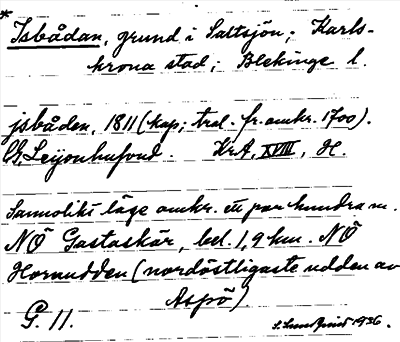 * Isbådan, grund i Saltsjön; Karls-
krona stad; Blekinge l.
jsbåden, 1811 (kop; trol. fr. omkr. 1700).
CG Leijonhufvud. KrA, XVIII, H.
Sannolikt läge omkr. ett par hundra m.
NÖ Gastaskär, bel. 1,9 km. NÖ
Hornudden (nordöstligaste udden av
Aspö)
G. 11.
1936.